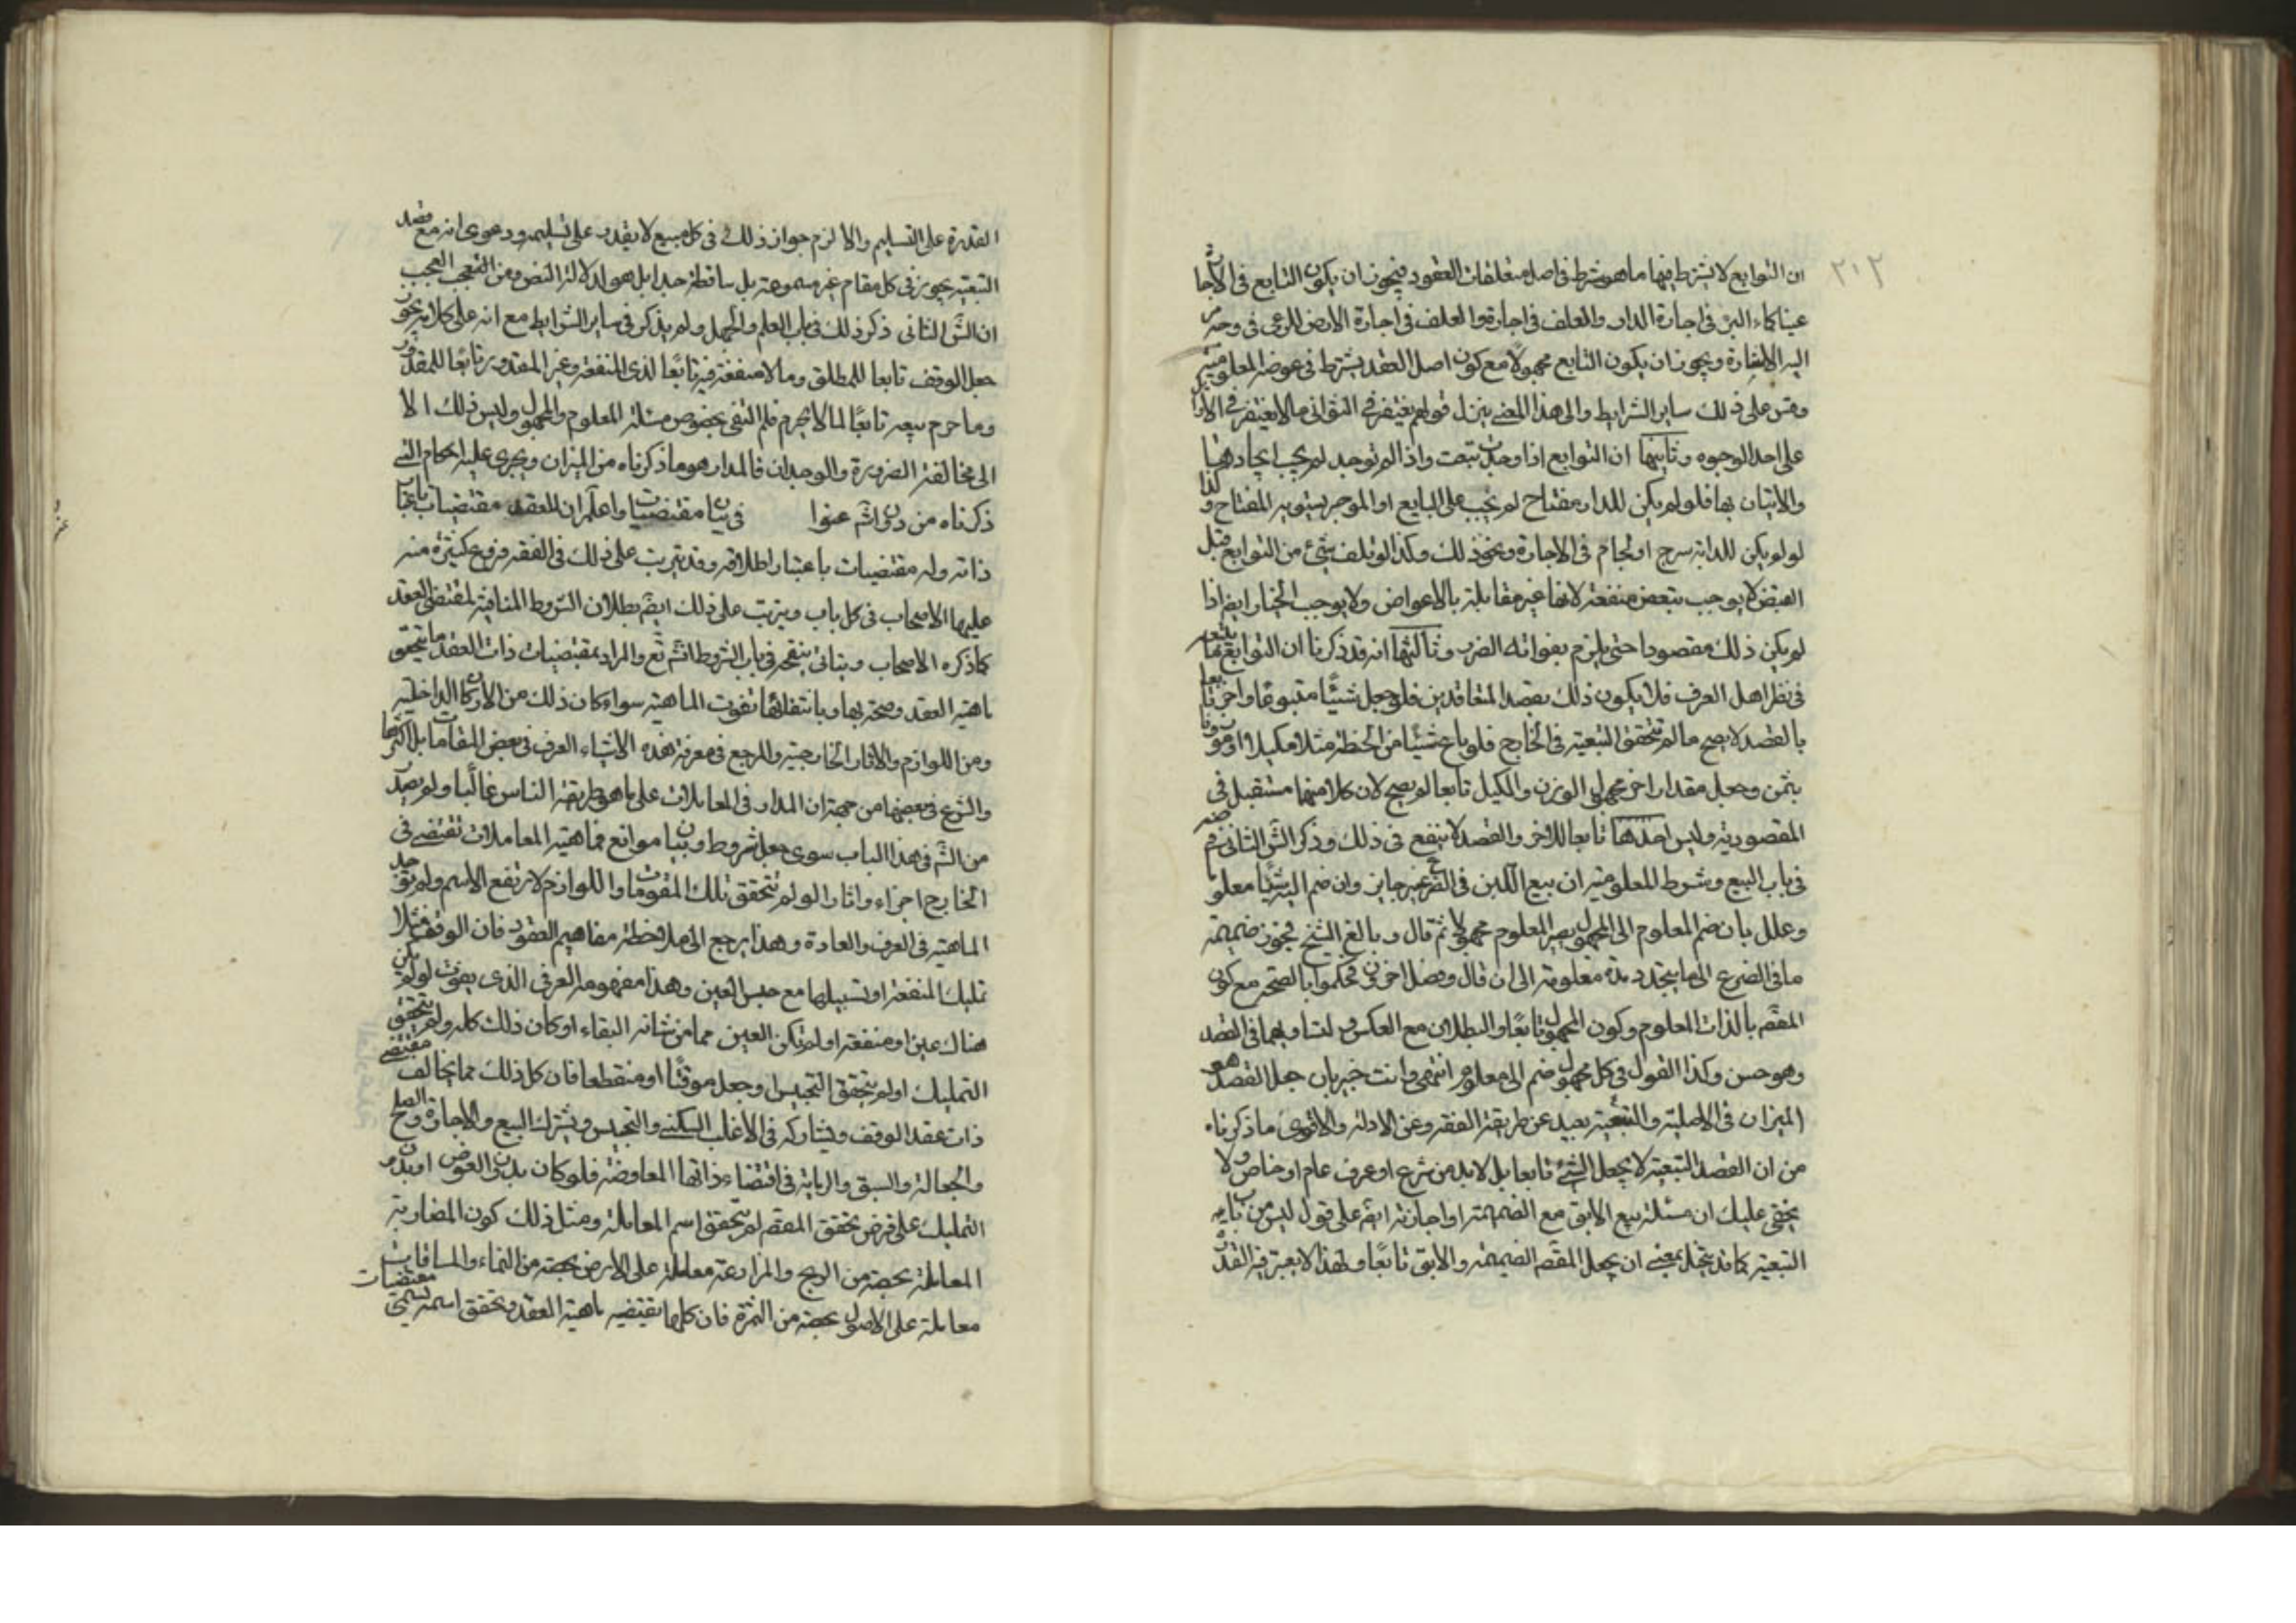 ٢١٢
ان التوابع لا يشترط فيها ما هو شرط في اصل متعلقات العقود فيجوز ان يكون التابع في الاجارة
عينا كماء البئر في اجارة الدار والعلف في اجارة والعلف في اجارة الارض للرعي في وجه مر
اليه الاشارة ويجوز ان يكون التابع مجهولا مع كون اصل العقد يشترط في عوضه المعلومية
وقس على ذلك ساير الشرايط والى هذا المعنى ينزل قولهم يغتفر في الثواني ما لا يغتفر في الاوايل
على احد الوجوه وثانيها ان التوابع اذا وجدت تبعت واذا لم توجد لم يجب ايجادها
والاتيان بها فلو لم يكن للدار مفتاح لم يجب على البايع او الموجر تسويه المفتاح وكذا
لو لم يكن للدابة سرج او لجام في الاجارة ونحو ذلك وكذا لو تلف شيء من التوابع قبل
القبض لا يوجب تبعض منفعة لانها غير مقابلة بالاعواض ولا يوجب الخيار ايضا اذا
لم يكن ذلك مقصودا حتى يلزم بفواته الضرر وثالثها انه قد ذكرنا ان التوابع ما يتبع
في نظر اهل العرف فلا يكون ذلك بقصد المتعاقدين فلو جعل شيئا متبوعا واخر تابعا
بالقصد لا يصح ما لم تتحقق التبعية في الخارج فلو باع شيئا من الحنطة مثلا مكيلا او موزونا
بثمن وجعل مقدارا اخر مجهول الوزن والكيل تابعا لم يصح لان كلا منهما مستقبل في
المقصودية وليس احدهما تابعا للاخر والقصد لا ينفع في ذلك وذكر الش الثاني في ضه
في باب البيع وشرط المعلومية ان بيع اللبن في الضرع غير جايز وان ضم اليه شيئا معلوما
وعلل بان ضم المعلوم الى المجهول يصير المعلوم مجهولا ثم قال وبالغ الشيخ فجوز ضميمة
ما في الضرع الى ما يتجدد مدة معلومة الى ان قال وفصل اخرون فحكموا بالصحة مع كون
المقص بالذات المعلوم وكون المجهول تابعا والبطلان مع العكس وتساويهما في القصد
وهو حسن وكذا القول في كل مجهول ضم الى معلوم انتهى وانت خبير بان جعل القصد هو
الميزان في الاصلية والتبعية بعيد عن طريقة الفقه وعن الادلة والاقوى ما ذكرناه
من ان القصد التبعية لا يجعل الشيء تابعا بل لا بد من شرع او عرف عام او خاص ولا
يخفى عليك ان مسئلة بيع الابق مع الضميمة او اجارته ايض على قول ليس من باب
التبعية كما قد يتخيل بمعنى ان يجعل المقص الضميمة والابق تابعا ولهذا لا يعتبر فيه القدرة
القدرة على التسليم والا لزم جواز ذلك في كل مبيع لا يقدر على تسليمه ودعوى انه مع قصد
التبعية يجوز في كل مقام غير مسموعة بل ساقطة جدا بل هو لدلالة النص ومن التعجب العجيب
ان الش الثاني ذكر ذلك في باب العلم والجهل ولم يذكر في ساير الشرايط مع انه على كلامه يجوز
جعل الوقف تابعا للمطلق وما لا منفعة فيه تابعا لذي المنفعة وغير المقدور تابعا للمقدور
وما حرم بيعه تابعا لما لا يحرم فلم التفى بخصوص مسئلة المعلوم والمجهول وليس ذلك الا
الى مخالفة الضرورة والوجدان فالمدار هو ما ذكرناه من الميزان ويجرى عليه احكام التي
ذكرناه من دون اثم عنوا في بيان مقتضيات واعلم ان للعقد مقتضيات باعتبار
ذاته وله مقتضيات باعتبار اطلاقه وقد يترتب على ذلك في الفقه فروع كثيرة منه
عليها الاصحاب في كل باب ويترتب على ذلك ايض بطلان الشروط المنافية لمقتضى العقد
كما ذكره الاصحاب وبيانى ينقح في باب الشروط انش تع والمراد بمقتضيات ذات العقد ما يتحقق
ماهية العقد وصحته بها وبانتفائها تفوت الماهية سواء كان ذلك من الاركان الداخلية
ومن اللوازم والاثار الخارجية والمرجع في معرفة هذه الاشياء العرف في بعض المقامات بل اكثرها
والشرع في بعضها من جهة ان المدار في المعاملات على ما هو طريقة الناس غالبا ولم يصدر
من الش في هذا الباب سوى جعل شروط وبيان موانع فماهية المعاملات تقتضي في
الخارج اجزاء واثارا لو لم تتحقق تلك المقومات واللوازم لارتفع الاسم ولم توجد
الماهية في العرف والعادة وهذا يرجع الى ملاحظة مفاهيم العقود فان الوقف مثلا
تمليك المنفعة او تسبيلها مع حبس العين وهذا مفهومه العرفي الذي يفوت لو لم يكن
هناك عين او منفعة او لم تكن العين مما من شانه البقاء او كان ذلك كله ولم يتحقق
التمليك او لم يتحقق التحبيس او جعل موقتا او منقطعا فان كل ذلك مما يخالف مقتضى
ذات عقد الوقف ويشاركه في الاغلب السكنى والتحبيس ويشترك البيع والاجارة والصلح
والجعالة والسبق والرماية في اقتضاء ذاتها المعاوضة فلو كان بدون العوض او بدون
التمليك على فرض تحقق المقص لم يتحقق اسم المعاملة ومثل ذلك كون المضاربة
المعاملة بحصة من الربح والمزارعة معاملة على الارض بحصة من النماء والمساقات
معاملة على الاصول بحصة من الثمرة فان كلها تقتضيه ماهية العقد وتحقق اسمه تسمى مقتضيات